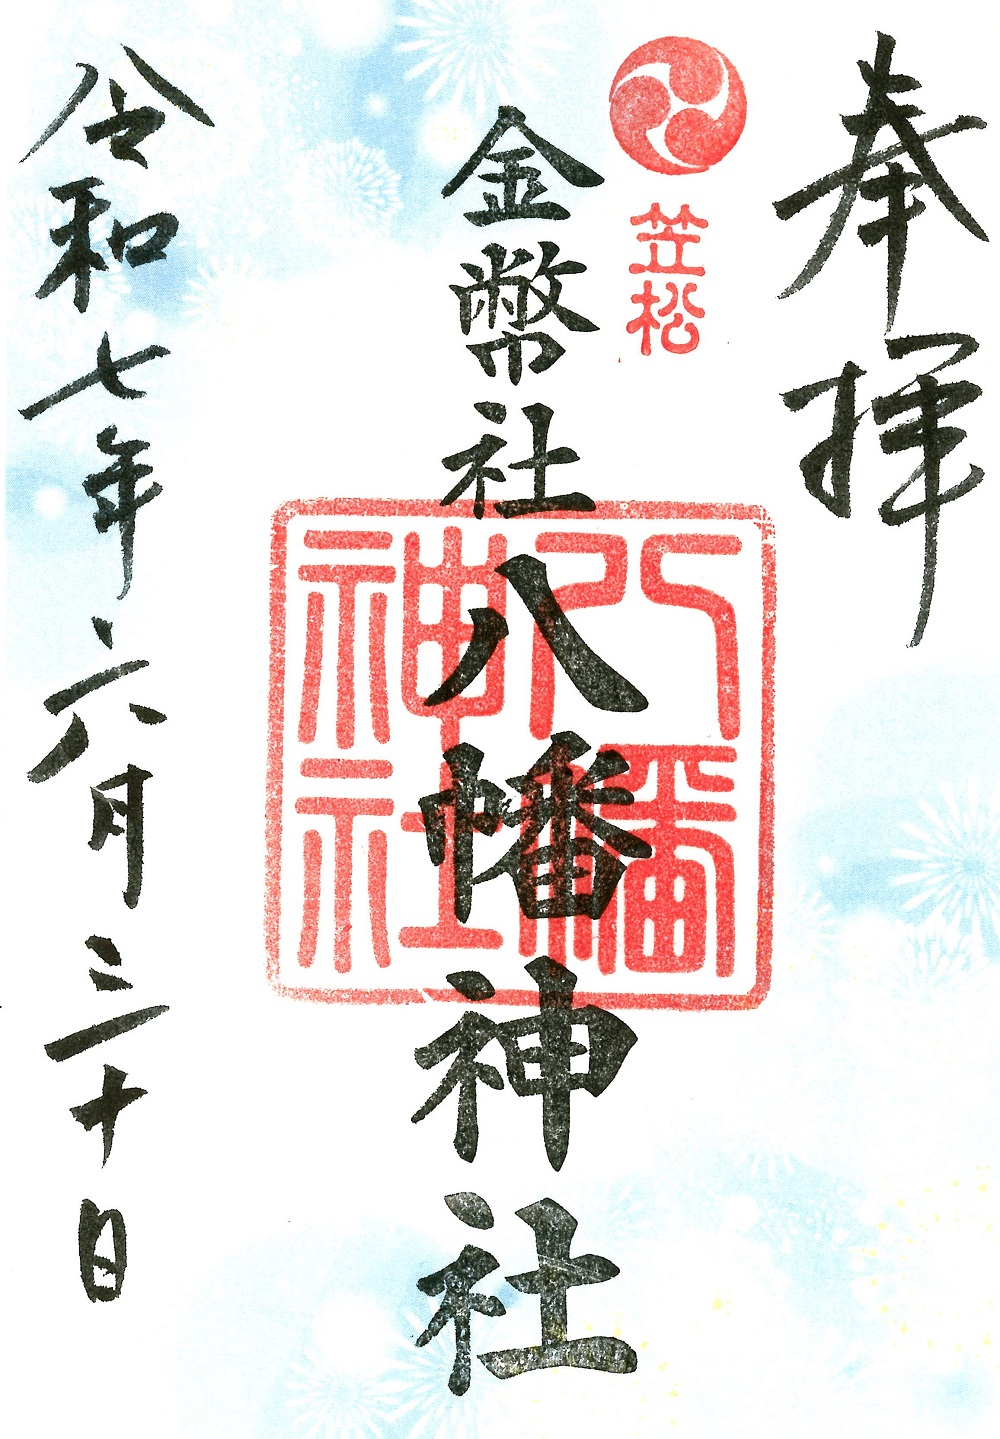 奉拝
笠松
金幣社八幡神社
八幡神社
令和七年六月三十日